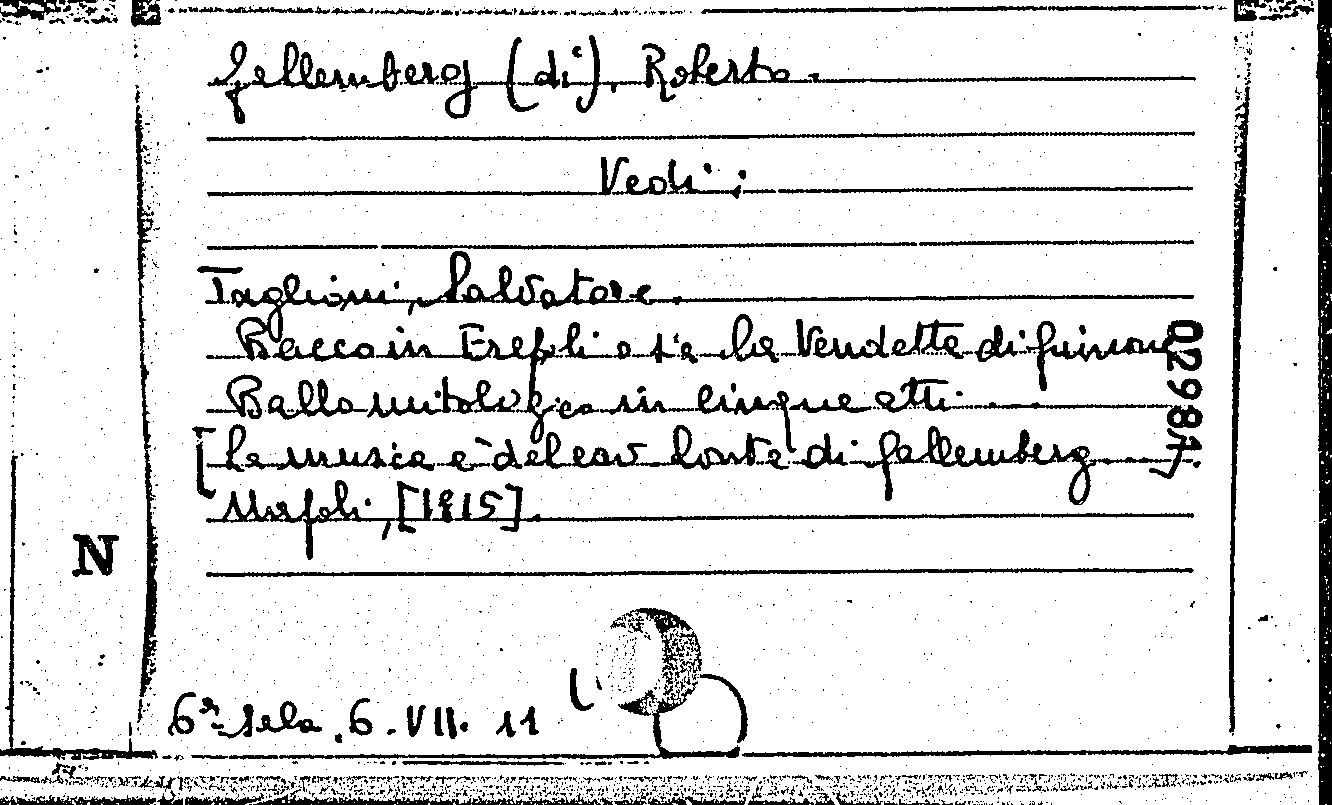 Gallemberg (di), Roberto.
Vedi:
Taglioni, Salvatore.
Bacco in Erepoli o sia la Vendetta di Giunone
Ballo mitologico in cinque atti.
[La musica è del cav. Conte di Gallemberg.]
Napoli, [1815].
02981
N
6ª Sala. 6. VII. 11